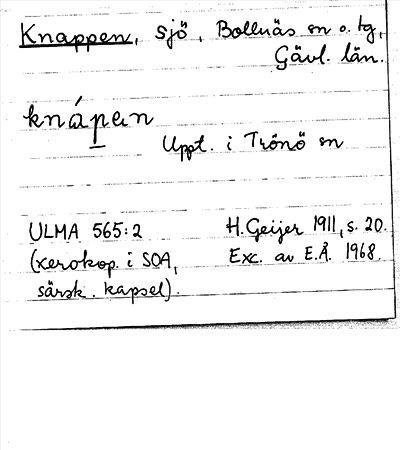 Knappen, sjö, Bollnäs sn o. tg,
Gävl. län.
knápen
Uppt. i Trönö sn
ULMA 565:2 H. Geijer 1911, s. 20.
(xerokop. i SOA, Exc. av E.Å. 1968.
särsk. kapsel).